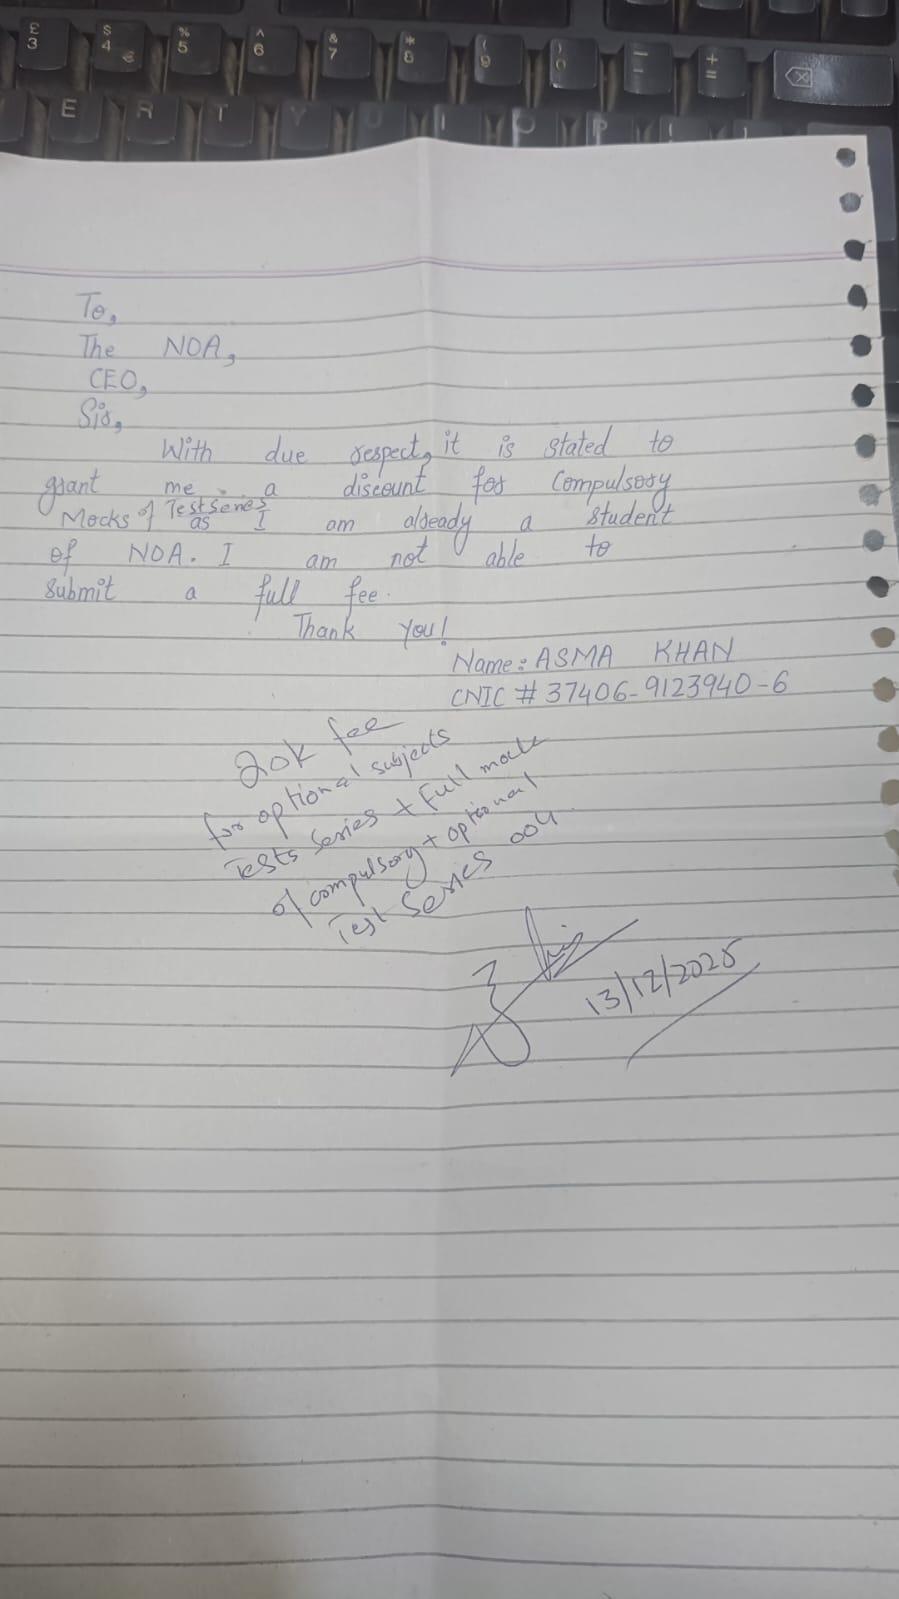 £
3
$
4 €
%
5
^
6
&
7
*
8
(
9
)
0
_
-
+
=
E R T Y U I O P [ ]
To,
The NOA,
CEO,
Sir,
With due respect, it is stated to
grant me a discount for Compulsory
Mocks of Test Series as I am already a student
of NOA. I am not able to
submit a full fee.
Thank you!
Name: ASMA KHAN
CNIC # 37406-9123940-6
20k fee
for optional subjects
Tests Series + Full mock
of compulsory + optional
Test Series 004.
13/12/2025